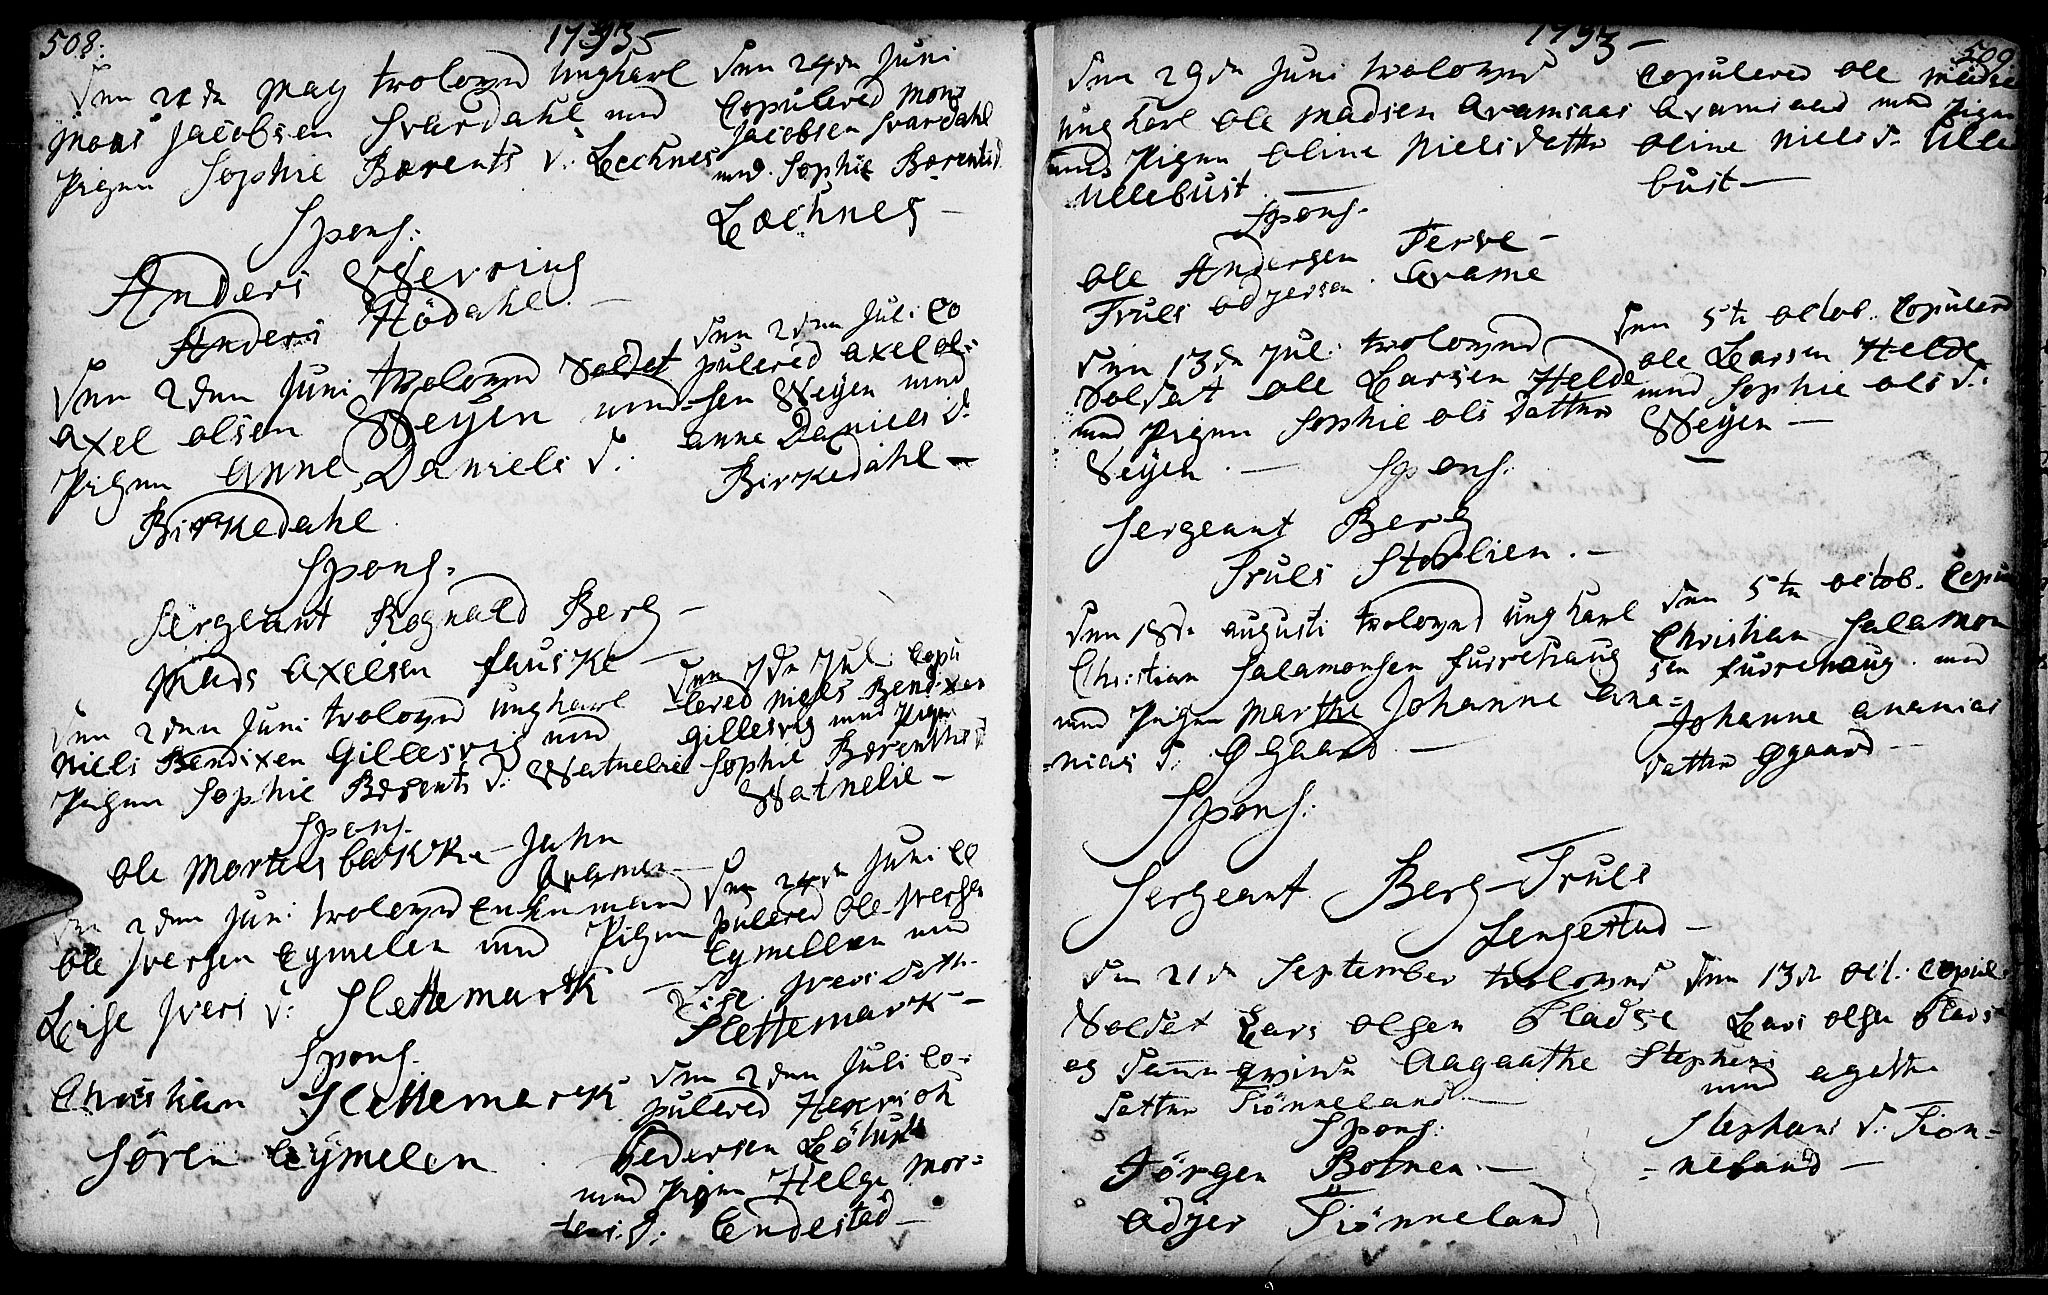 508.
1793
Den 2de May trolovet ungkarl
Mons Jacobsen Svardahl med
Pigen Sophie Bærents d: Lechnes
Spons:
Anders Wevring
Anders Hödahl. —
Den 2den Juni trolovet Soldat
Axel Olsen Weyen med
Pigen Anne Daniels d:
Birkedahl
Spons.
Sergeant Rognald Berg —
Mads Axelsen Fauske —
Den 2den Juni trolovet ungkarl
Niels Bendixen Gillesvig med
Pigen Sophie Bærents d: Watnelie
Spons.
Ole Mortensbakke – John
Arame —
Den 2den Juni trolovet Enkemand
Ole Iversen Eymelen med Pigen
Lisse Ivers d: Slettemark
Spons.
Christian Slettemark
Sören Eymelen
Den 24de Juni
Copulered Mons
Jacobsen Svardahl
med Sophie Bærentsd
Læchnes —
Den 2den Juli Co
pulered Axel Ol-
sen Weyen med
Anne Daniels d.
Birkedahl —
Den 7de Juli Copu
lered Niels Bendixen
Gillesvig med Pigen
Sophie Bærents d
Watnelie —
Den 24de Juni Co
pulered Ole Iversen
Eymellen med
Lisse Ivers Datt.
Slettemark —
Den 2den Juli Co-
pulered Henrich
Pedersen
med Pigen Helge Mor=
tens.d: Endestad —
1793 —
509
Den 29de Juni trolovet
ungkarl Ole Madsen Aramsaas
med Pigen Oline Nielsdatter
Ullebust. —
Spons.
Ole Andersen Terve —
Truls Odjersen. Arame
Den 13de Juli trolovet
Soldat Ole Larsen Helde
med Pigen Sophie Ols datter
Weyen. —
Spons:
Sergeant Berg
Truls Storlien. —
Den 18de Augusti trolovet ungkarl
Christian Salamonsen Furrehaug
med Pigen Marthe Johanne Ana=
=nias d: Øgaard. —
Spons:
Sergeant Berg – Truls
Sengestad —
Den 21de September trolovet
Soldat Lars Olsen Pladse
og Danneqvinde Aagaathe Stephens
datter Tiönneland. —
Spons:
Jörgen Botnen. —
Odjer Tiönneland
Copulered Ole Madse
Aramsaas med Pigen
Oline Niels d. Ulle
bust —
Den 5te Octob. Copulered
Ole Larsen Helde
med Sophie Ols d:
Weyen —
Den 5te Octob. Copu
Christian Salamon
sen Furrehaug. med
Johanne Ananias
datter Øgaard —
Den 13de Oct: Copul
Lars Olsen Plads
med Agathe
Stephans d: Tiön=
=neland —